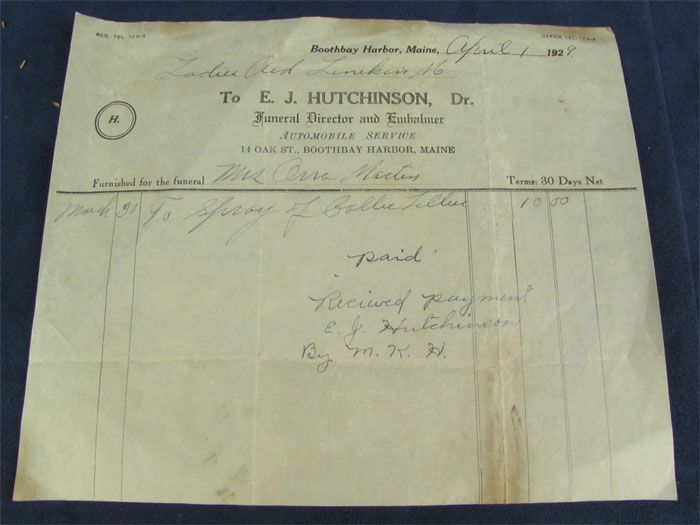 RES. TEL. 123-3
OFFICE TEL. 123-2
Boothbay Harbor, Maine, April 1 1929.
Ladies Aid Linekin Me
To E. J. HUTCHINSON, Dr.
H.
Funeral Director and Embalmer
AUTOMOBILE SERVICE
14 OAK ST., BOOTHBAY HARBOR, MAINE
Furnished for the funeral Mrs Orra Martin Terms: 30 Days Net
March 30 To Spray of Calla Lillies 10 00
Paid
Recieved payment
E. J. Hutchinson
By M. K. H.